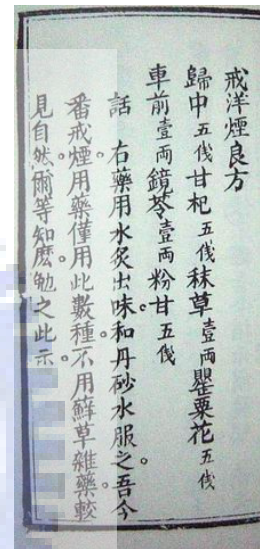 戒洋煙良方
歸中五伐甘杞五伐秣草壹両罌粟花五伐
車前壹両鏡芩壹両粉甘五伐
話 右藥用水炙出味和丹砂水服之。吾今
番戒煙。用藥僅用此數種。不用蘚草雜藥。較
見自然。爾等知麽。勉之此示